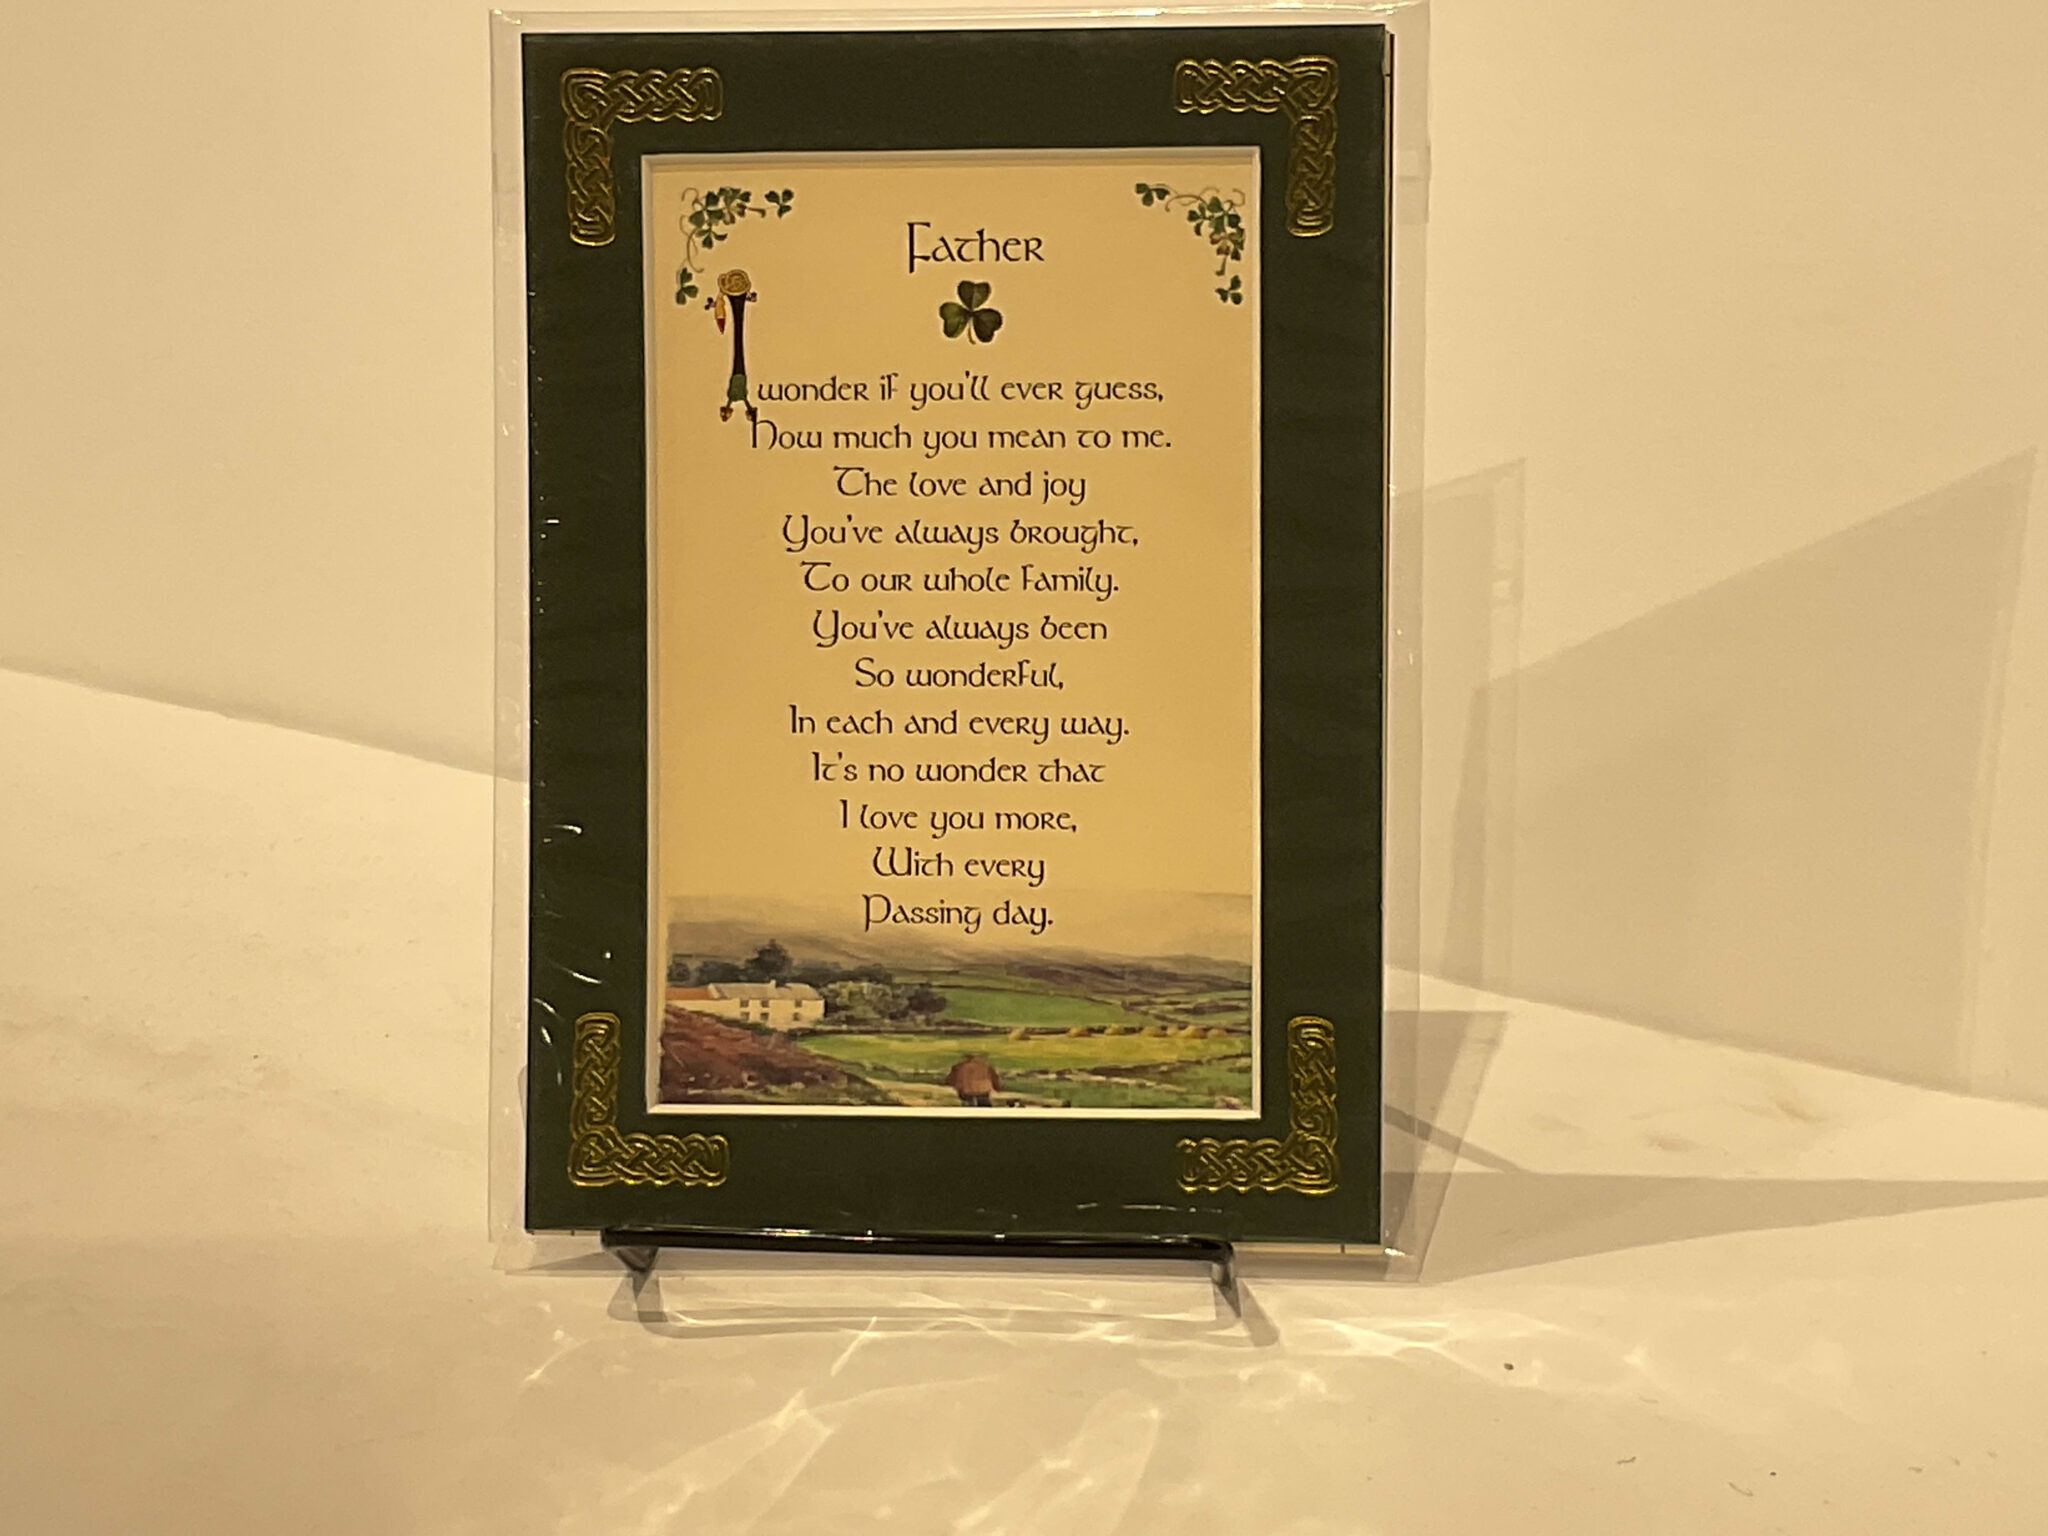 Father
I wonder if you'll ever guess,
How much you mean to me.
The love and joy
You've always brought,
To our whole family.
You've always been
So wonderful,
In each and every way.
It's no wonder that
I love you more,
With every
Passing day.